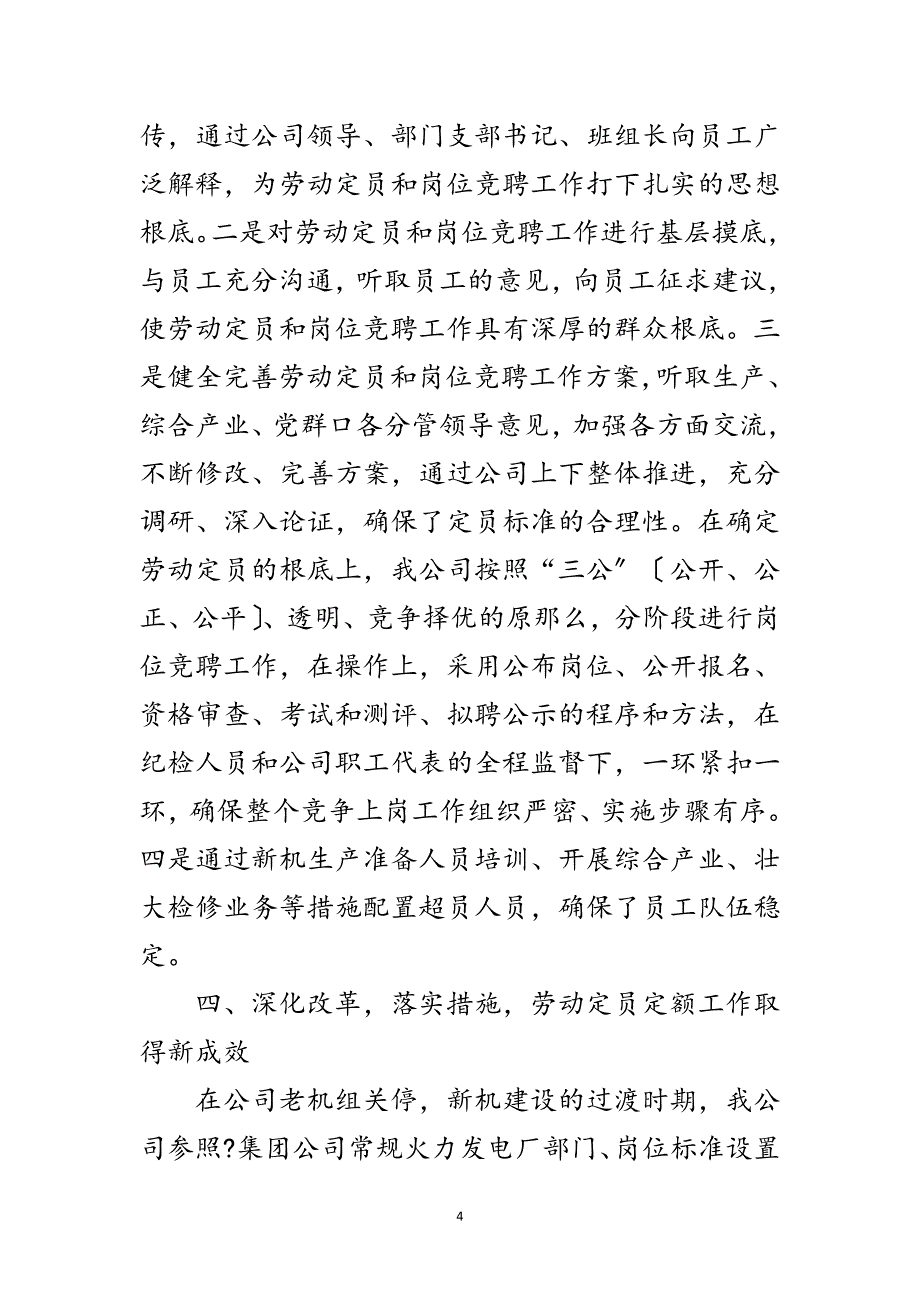 传，通过公司领导、部门支部书记、班组长向员工广
泛解释，为劳动定员和岗位竞聘工作打下扎实的思想
根底。二是对劳动定员和岗位竞聘工作进行基层摸底，
与员工充分沟通，听取员工的意见，向员工征求建议，
使劳动定员和岗位竞聘工作具有深厚的群众根底。三
是健全完善劳动定员和岗位竞聘工作方案，听取生产、
综合产业、党群口各分管领导意见，加强各方面交流，
不断修改、完善方案，通过公司上下整体推进，充分
调研、深入论证，确保了定员标准的合理性。在确定
劳动定员的根底上，我公司按照“三公〞〔公开、公
正、公平〕、透明、竞争择优的原那么，分阶段进行岗
位竞聘工作，在操作上，采用公布岗位、公开报名、
资格审查、考试和测评、拟聘公示的程序和方法，在
纪检人员和公司职工代表的全程监督下，一环紧扣一
环，确保整个竞争上岗工作组织严密、实施步骤有序。
四是通过新机生产准备人员培训、开展综合产业、壮
大检修业务等措施配置超员人员，确保了员工队伍稳
定。
四、深化改革，落实措施，劳动定员定额工作取
得新成效
在公司老机组关停，新机建设的过渡时期，我公
司参照?集团公司常规火力发电厂部门、岗位标准设置
4